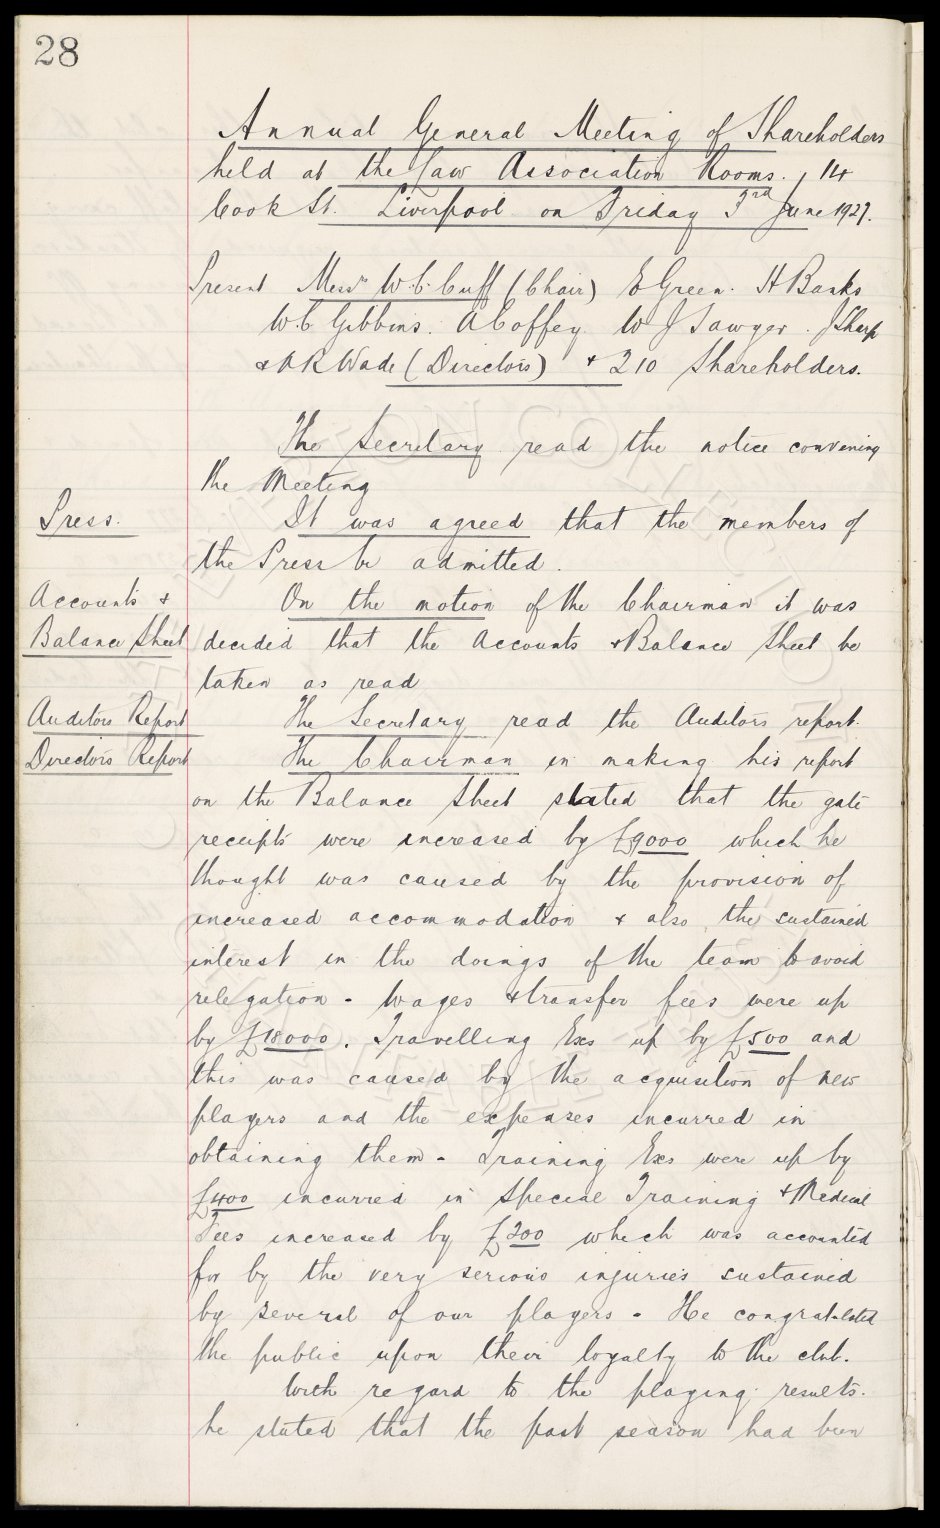 28
Annual General Meeting of Shareholders
held at the Law Association Rooms. 14
Cook St. Liverpool on Friday 3rd June 1927.
Present Messrs W.C. Cuff (Chair) E Green. H Banks
W.C Gibbins. A Coffey. W J Sawyer. J Sharp
& A R Wade (Directors) + 210 Shareholders.
The Secretary read the notice convening
the Meeting
Press.
It was agreed that the members of
the Press be admitted.
Accounts &
Balance Sheet
On the motion of the Chairman it was
decided that the Accounts & Balance Sheet be
taken as read
Auditors Report
The Secretary read the Auditors report.
Directors Report
The Chairman in making his report
on the Balance Sheet stated that the gate
receipts were increased by £9000 which he
thought was caused by the provision of
increased accommodation & also the sustained
interest in the doings of the team to avoid
relegation - Wages & transfer fees were up
by £18000. Travelling Exs up by £500 and
this was caused by the acquisition of new
players and the expenses incurred in
obtaining them - Training Exs were up by
£400 incurred in Special Training & Medical
Fees increased by £200 which was accounted
for by the very serious injuries sustained
by several of our players - He congratulated
the public upon their loyalty to the club.
With regard to the playing results.
he stated that the past season had been